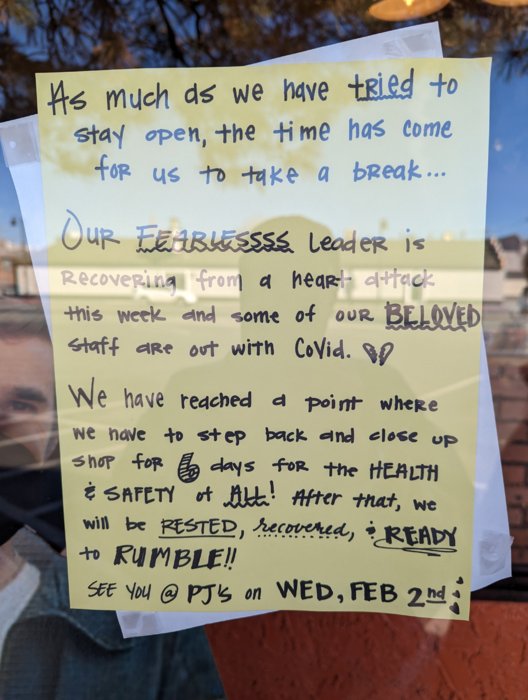 As much as we have tried to
stay open, the time has come
for us to take a break...
Our FEARLESSSS Leader is
Recovering from a heart attack
this week and some of our BELOVED
staff are out with Covid.
We have reached a point where
we have to step back and close up
shop for 6 days for the HEALTH
& SAFETY of ALL! After that, we
will be RESTED, recovered, & READY
to RUMBLE!!
SEE YOU @ PJ's on WED, FEB 2nd!